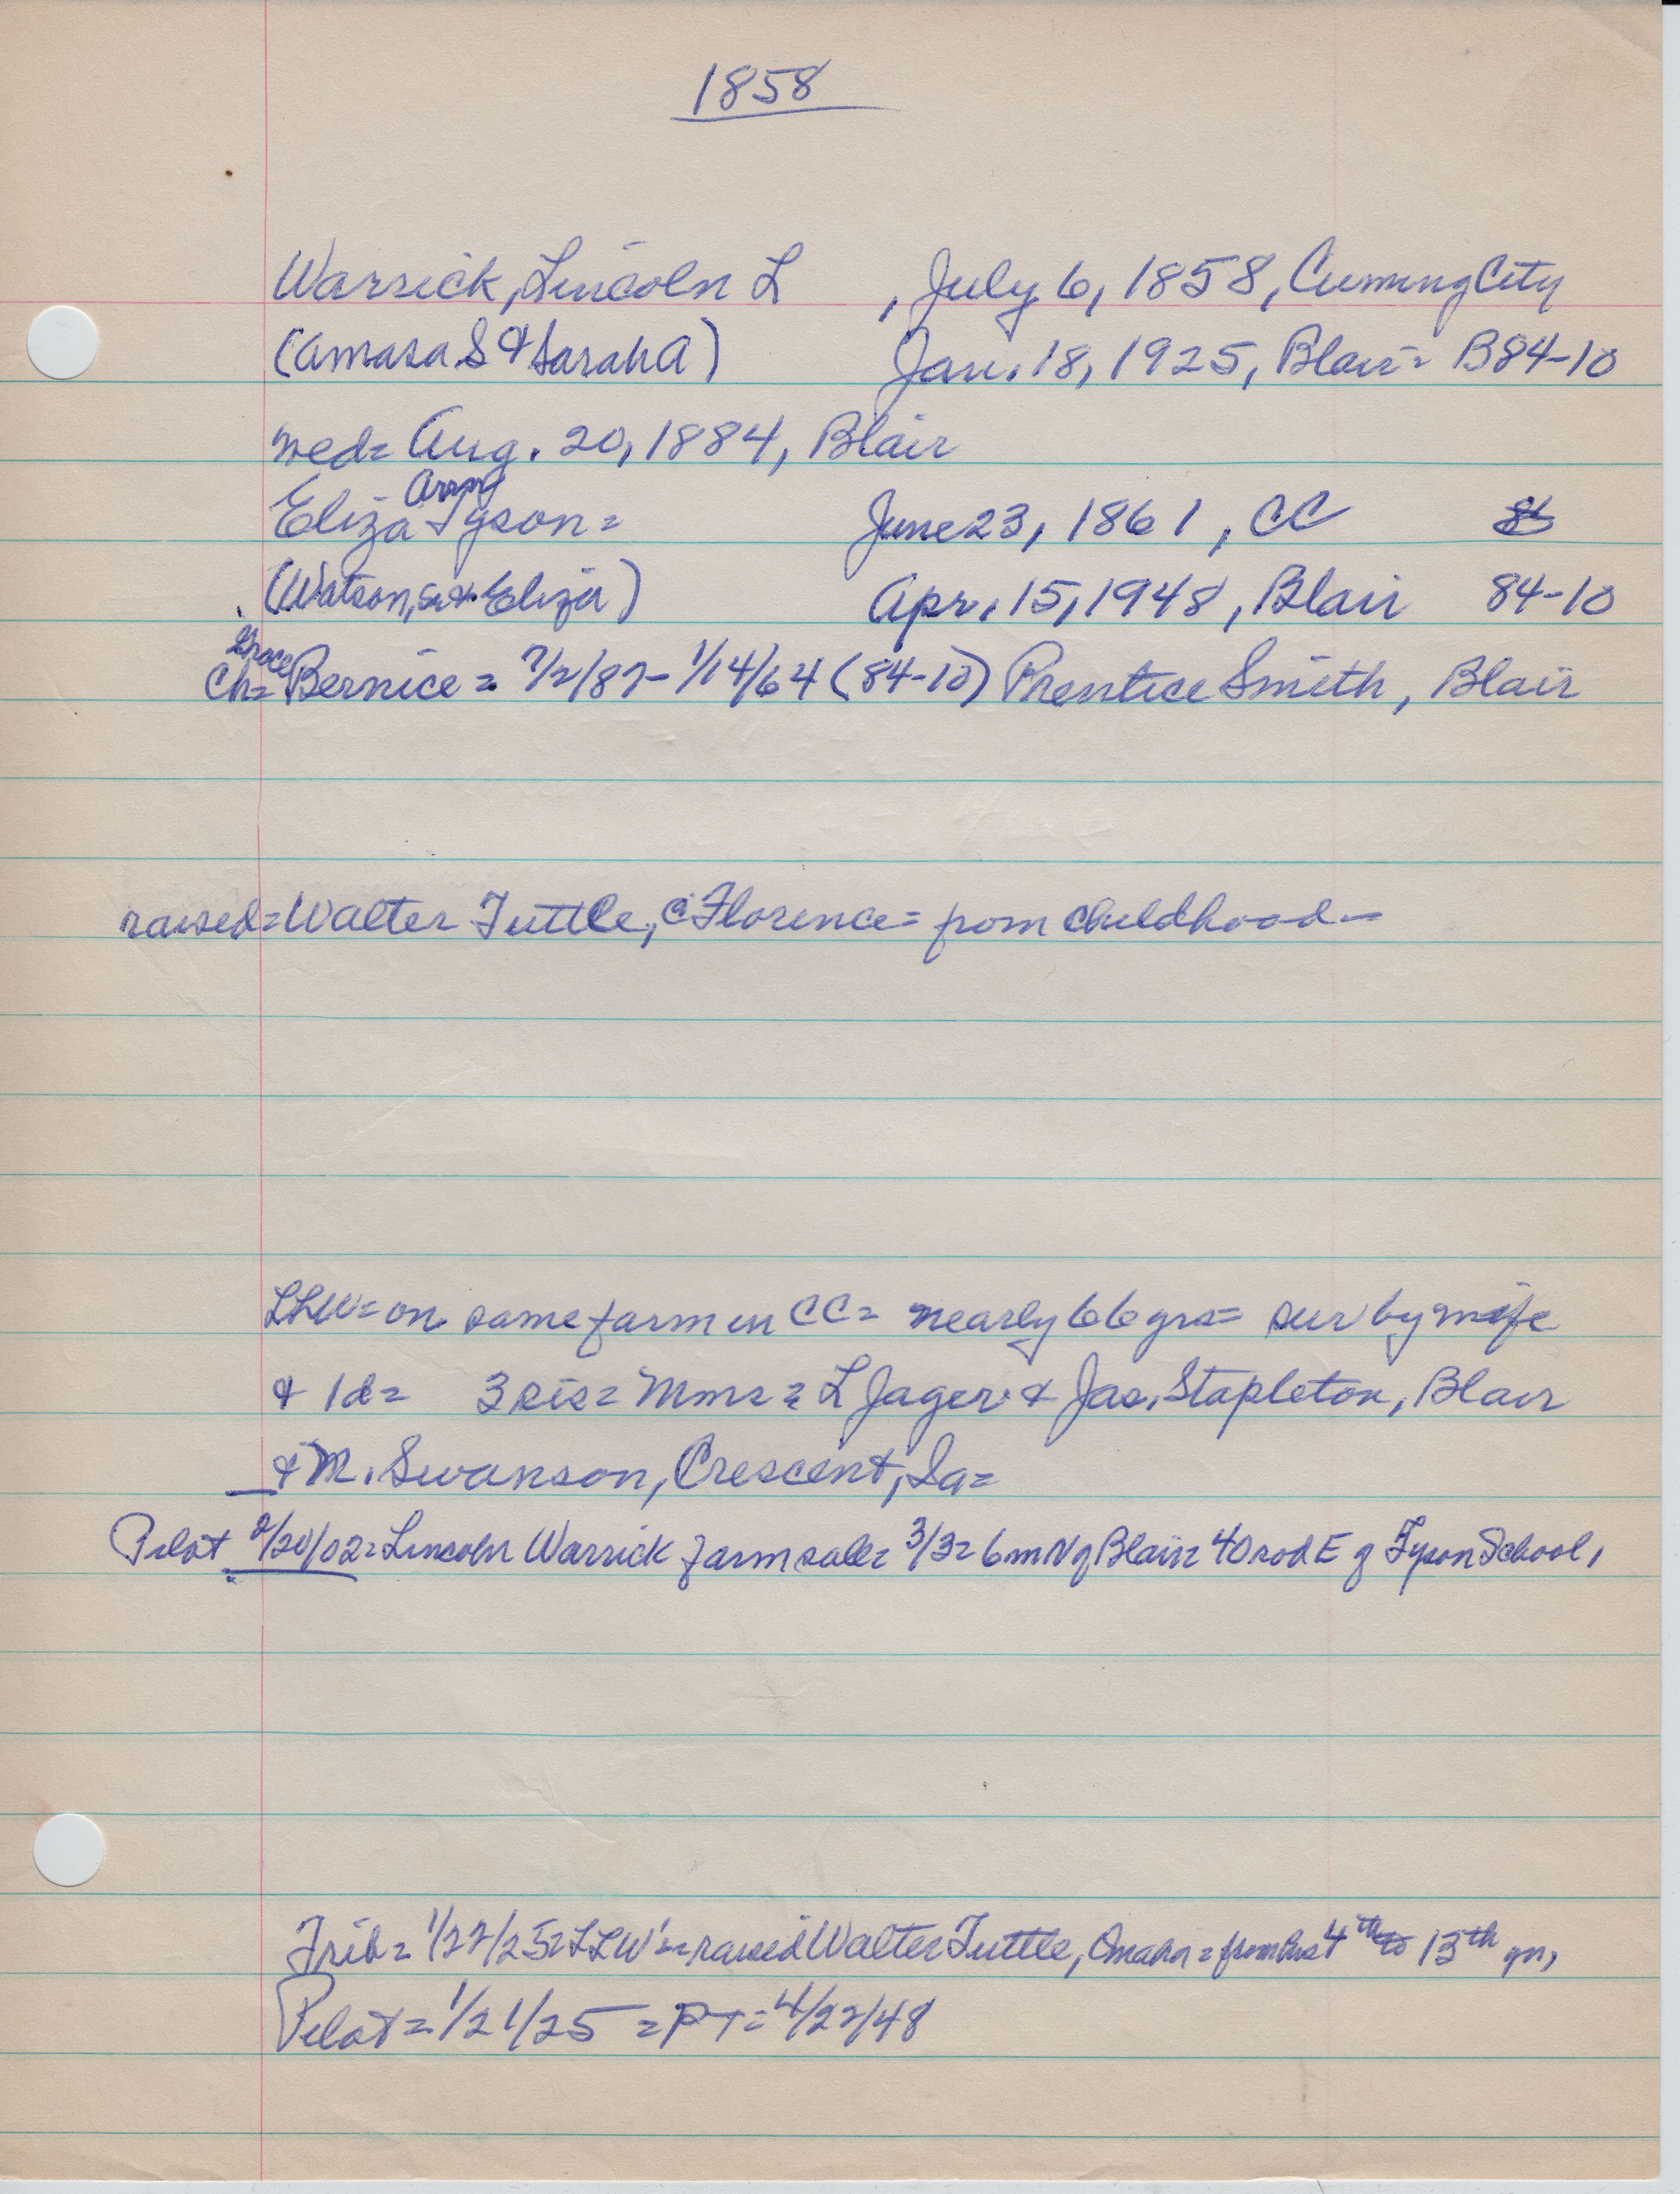 1858
Warrick, Lincoln L , July 6, 1858, Cuming City
(Amasa S & Sarah A) Jan. 18, 1925, Blair = B84-10
wed = Aug. 20, 1884, Blair
Eliza Tyson = June 23, 1861, CC
(Watson, Sr & Eliza) Apr. 15, 1948, Blair 84-10
Grace
Ch = Bernice = 7/2/87 - 1/14/64 (84-10) Prentice Smith, Blair
raised = Walter Tuttle, Florence = from childhood -
LLW = on same farm in CC = nearly 66 yrs = sur by wife
& 1d = 3 sis = Mmes = L Jager & Jas. Stapleton, Blair
& M. Swanson, Crescent, Ia =
Pilot 2/20/02 = Lincoln Warrick farm sale = 3/3 = 6 m N of Blair = 40 rod E of Tyson School,
Trib = 1/27/25 = LLW's = raised Walter Tuttle, Omaha = from his 4th to 13th yr,
Pilot = 1/21/25 = PT = 4/22/48